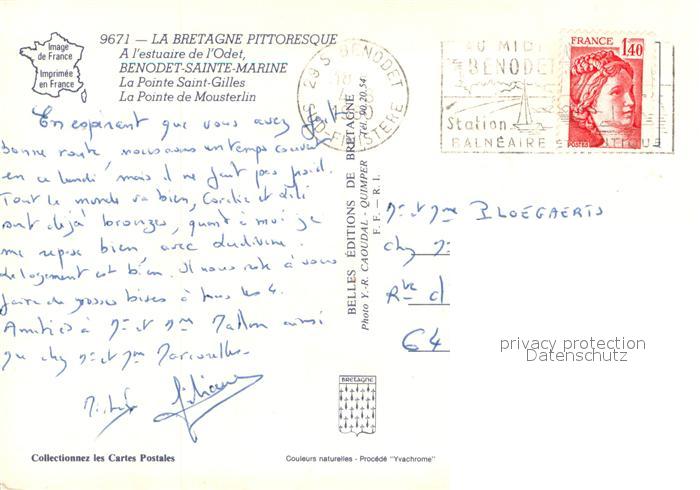 Image
de France
Imprimée
en France
9671 — LA BRETAGNE PITTORESQUE
A l'estuaire de l'Odet,
BENODET-SAINTE-MARINE
La Pointe Saint-Gilles
La Pointe de Mousterlin
En espérant que vous avez fait
bonne route, nous avons un temps couvert
en ce lundi, mais il ne fait pas froid.
Tout le monde va bien, et
sont déjà bronzés, quant à moi je
me repose bien, avec
Le logement est bien. Il nous reste à vous
faire de grosses bises à tous les 4.
Amitiés à Mr et Mme ainsi
que chez Mr et Mme
BELLES ÉDITIONS DE BRETAGNE
Photo Y.-R. CAOUDAL - QUIMPER Tél. 90.20.54
F. F. — R. I.
29 S. BENODET
SUD-FINISTERE
AU MIDI
BENODET
Station
BALNÉAIRE
FRANCE
1,40
POSTES
Mr et Mme PLOEGAERTS
chez
Rue d
64
privacy protection
Datenschutz
BRETAGNE
Collectionnez les Cartes Postales
Couleurs naturelles - Procédé "Yvachrome"